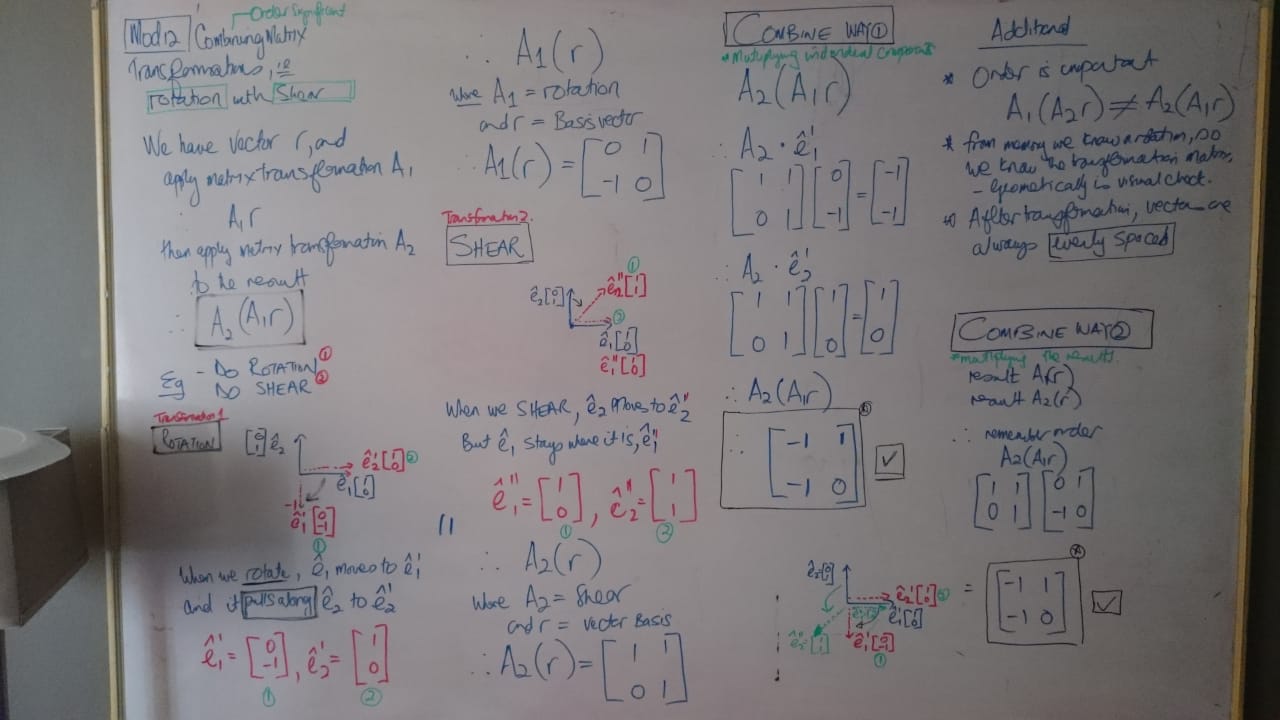 Order Significant
Mod12 Combining Matrix
Transformations, ie
rotation with Shear
We have vector r, and
apply matrix transformation A1
∴ A1r
then apply matrix transformation A2
to the result
∴ A2(A1r)
Eg - DO ROTATION ①
DO SHEAR ②
Transformation 1
ROTATION
[0 1] ê2
ê2' [1 0] ②
ê1 [1 0]
-1
ê1' [0 -1]
①
When we rotate, ê1 moves to ê1'
and it pulls along ê2 to ê2'
ê1' = [0 -1], ê2' = [1 0]
① ②
∴ A1(r)
Where A1 = rotation
and r = Basis vector
∴ A1(r) = [0 1
-1 0]
Transformation 2.
SHEAR
①
ê2 [0 1] ê2'' [1 1]
②
ê1 [1 0]
ê1'' [1 0]
When we SHEAR, ê2 moves to ê2''
But ê1 stays where it is, ê1''
ê1'' = [1 0], ê2'' = [1 1]
① ②
∴ A2(r)
Where A2 = Shear
and r = vector Basis
∴ A2(r) = [1 1
0 1]
COMBINE WAY ①
*Multiplying individual components
A2(A1r)
∴ A2 · ê1'
[1 1 [0 = [-1
0 1] -1] -1]
∴ A2 · ê2'
[1 1 [1 = [1
0 1] 0] 0]
∴ A2(A1r)
∴ [-1 1
-1 0] ✓
ê2 [0 1]
ê2' [1 0] ②
ê1 [1 0]
ê1' [0 -1]
①
Additional
* Order is important
A1(A2r) ≠ A2(A1r)
* from memory we know a rotation, so
we know the transformation matrix,
- geometrically is visual check.
* After transformation, vectors are
always evenly spaced
COMBINE WAY ②
*multiplying the results.
result A1(r)
result A2(r)
∴ remember order
A2(A1r)
[1 1 [0 1
0 1] -1 0]
= [-1 1
-1 0] ✓